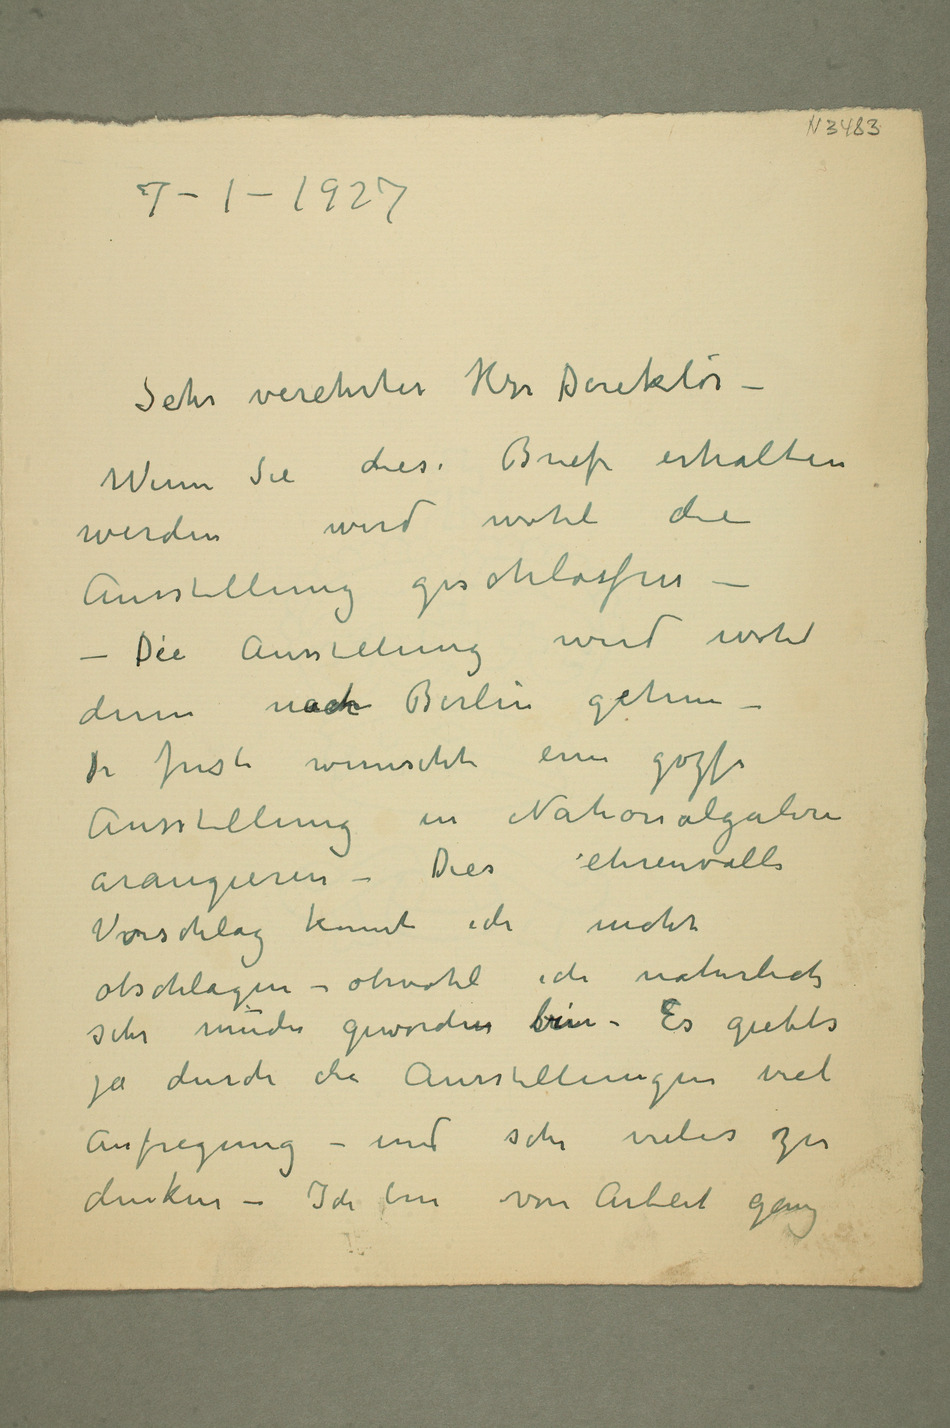 N 3483
7-1-1927
Sehr verehrter Herr Direktör –
Wenn Sie diese Briefe erhalten
werden wird wohl die
Ausstellung geschlossen –
– Die Ausstellung wird wohl
denn nach Berlin gehen –
Dr Justi wünscht eine grosse
Ausstellung in Nationalgalerie
arangieren – Dies ehrenvolle
Vorschlag konnte ich nicht
abschlagen – obwohl ich natürlich
sehr müde geworden bin – Es giebts
ja durch die Ausstellungen viel
Aufregung – und sehr vieles zu
denken – Ich bin von Arbeit ganz